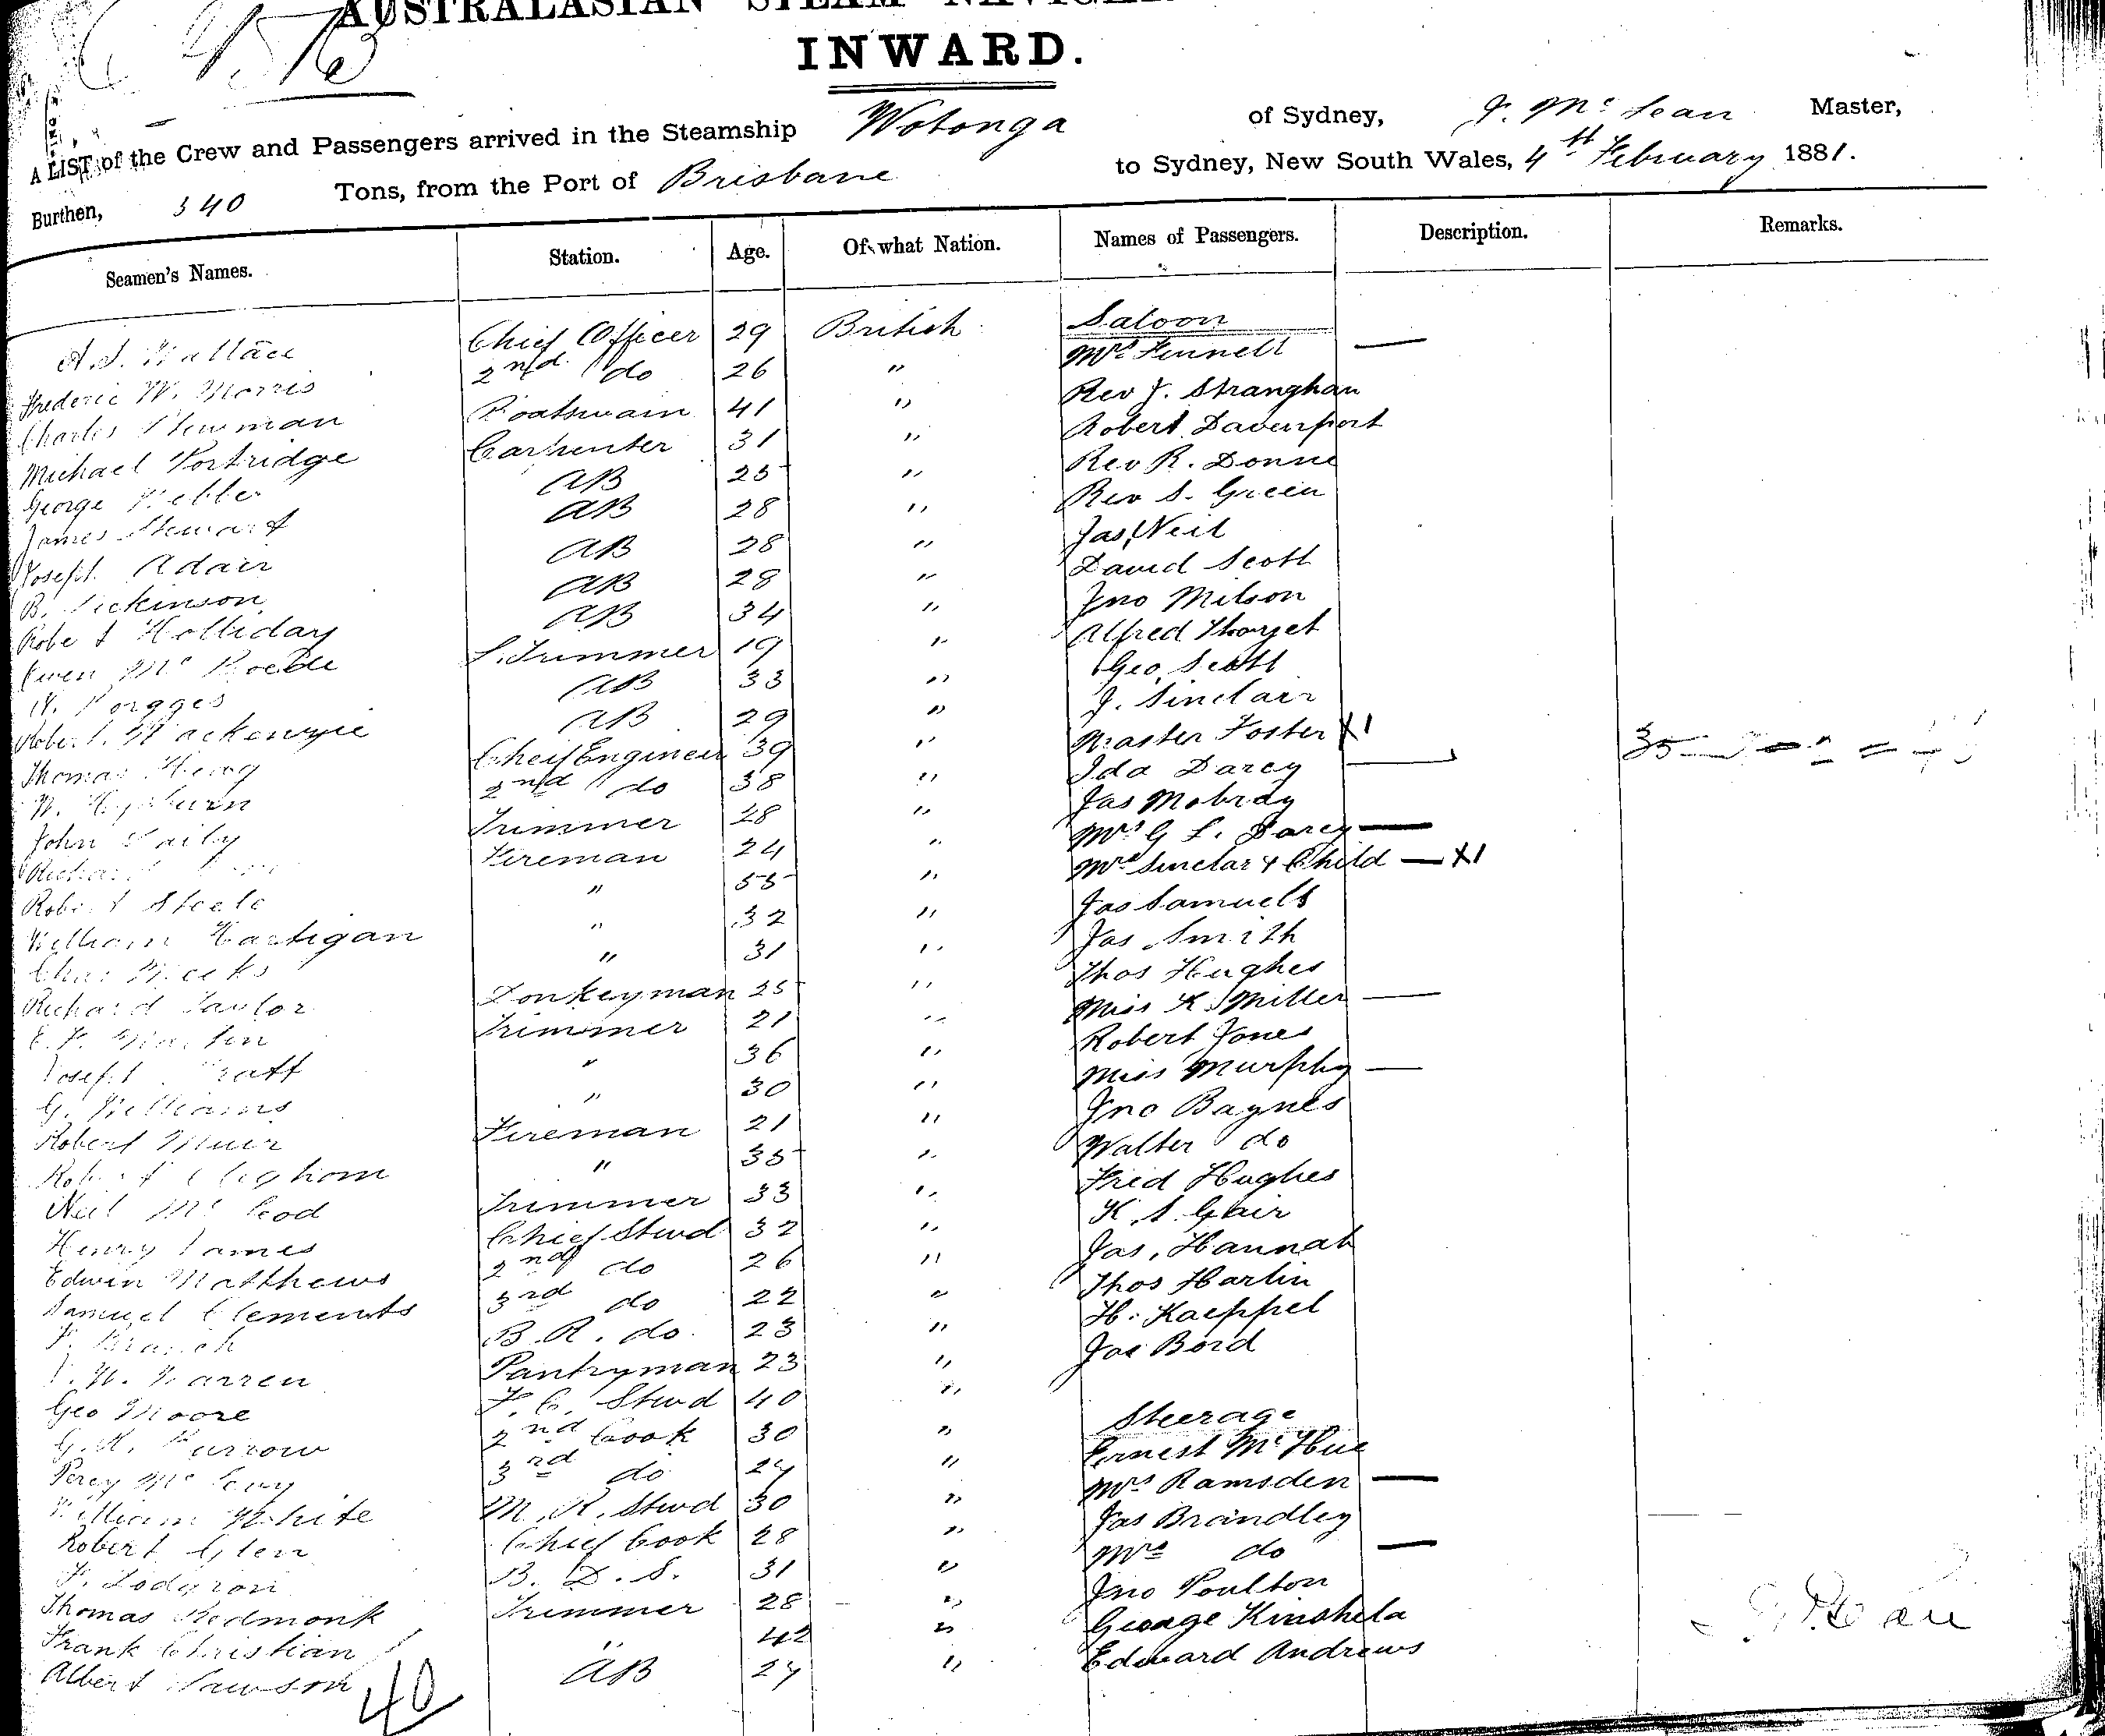 AUSTRALASIAN STEAM
INWARD.
A LIST of the Crew and Passengers arrived in the Steamship Wotonga of Sydney, J. Mc Lean Master,
Burthen, 340 Tons, from the Port of Brisbane to Sydney, New South Wales, 4th February 1881.
Seamen's Names. Station. Age. Of what Nation. Names of Passengers. Description. Remarks.
Saloon
A.S. Wallace Chief Officer 29 British Mrs Fennell —
Frederic W. Morris 2nd do 26 " Rev J. Stranghan
Charles Newman Boatswain 41 " Robert Davenport
Michael Portridge Carpenter 31 " Rev R. Donne
George Webber AB 25 " Rev S. Green
James Stewart AB 28 " Jas Neil
Joseph Adair AB 28 " David Scott
B. Dickinson AB 28 " Jno Milson
Robert Holliday AB 34 " Alfred
Owen Mc Trimmer 19 " Geo. Scott
W. AB 33 " J. Sinclair
Robert Mackenzie AB 29 " Master Foster X1
Thomas Cheif Engineer 39 " Ida Darcy —
W. Hepburn 2nd do 38 " Jas Mobray
John Daily Trimmer 28 " Mrs G L. Darcy —
Richard Fireman 24 " Mrs Sinclar & Child — X1
Robert Steele " 55 " Jas Samuels
William Hartigan " 32 " Jas Smith
Chas Weeks " 31 " Thos Hughes
Richard Taylor Donkeyman 25 " Miss K. Miller —
Martin Trimmer 21 " Robert Jones
Joseph " 36 " Miss Murphy —
G. Williams " 30 " Jno Baynes
Robert Muir Fireman 21 " Walter do
Robert Cleghorn " 35 " Fred Hughes
Neil Mc Leod Trimmer 33 " K. S. Gair
Henry James Chief Stwd 32 " Jas. Hannah
Edwin Matthews 2nd do 26 " Thos Harlin
Samuel Clements 3rd do 22 " H. Kaeppel
F. Branch B.R. do. 23 " Jas Bord
W. Warren Pantryman 23 "
Geo Moore F.C. Stwd 40 " Steerage
G.H. Farrow 2nd Cook 30 " Ernest Mc Hue
Percy Mc 3rd do 24 " Mrs Ramsden —
William White M.R. Stwd 30 " Jas Brandley
Robert Glen Chief Cook 28 " Mrs do —
F. B.D.S. 31 " Jno Poulton
Thomas Redmonk Trimmer 28 " George Kinshela
Frank Christian " 42 " Edward Andrews
Albert Lawson AB 24 "
40